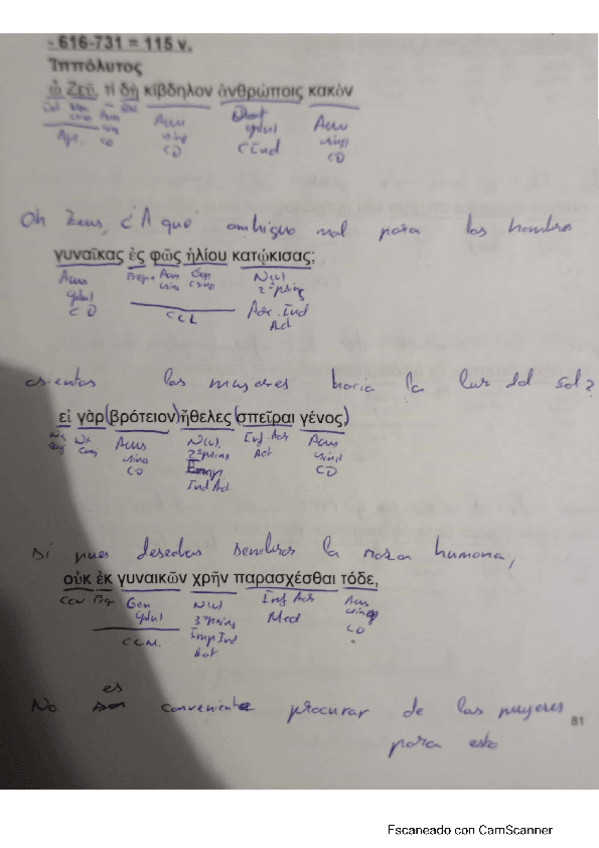 - 616-731 = 115 v.
Ἱππόλυτος
ὦ Ζεῦ, τί δὴ κίβδηλον ἀνθρώποις κακὸν
Acu Dat Acu
sing plul sing
CD C Ind CD
Oh Zeus, ¿A qué ambiguo mal para los hombres
γυναῖκας ἐς φῶς ἡλίου κατῴκισας;
Acu Prep Acu Gen N(v)
plul sing sing 2ª p sing
CD CCL Aor. Ind
Act
asientas las mujeres hacia la luz del sol?
εἰ γὰρ (βρότειον) ἤθελες (σπεῖραι γένος)
Nx Nx Acu N(v) Inf. Aor Acu
Conj sing 2ª p sing Act sing
CD Imp CD
Ind Act
si pues deseabas sembrar la raza humana,
οὐκ ἐκ γυναικῶν χρῆν παρασχέσθαι τόδε,
Prep Gen N(v) Inf Aor Acu
plul 3ª p sing Med sing
CCM. Imp Ind CD
Act
es
No conveniente procurar de las mujeres
81
para esto
Escaneado con CamScanner